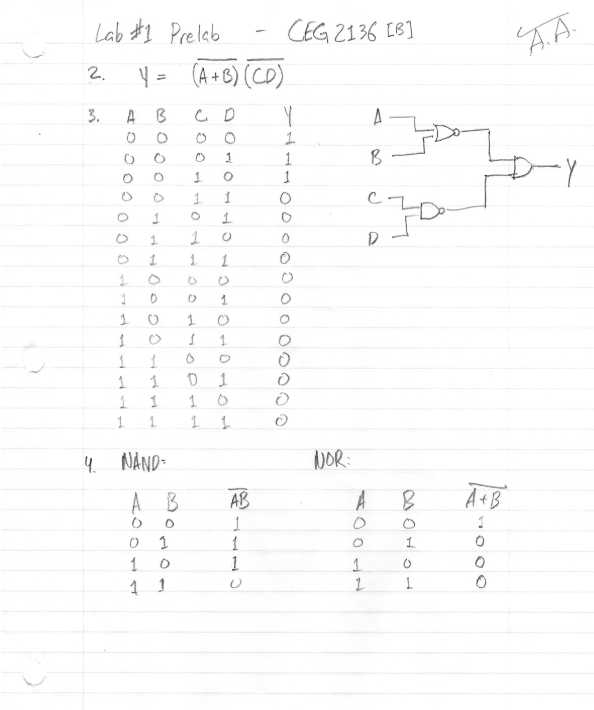 Lab #1 Prelab - CEG 2136 [B]
A.A.
2. Y = (A+B)‾ (CD)‾
3. A B C D Y
0 0 0 0 1
0 0 0 1 1
0 0 1 0 1
0 0 1 1 0
0 1 0 1 0
0 1 1 0 0
0 1 1 1 0
1 0 0 0 0
1 0 0 1 0
1 0 1 0 0
1 0 1 1 0
1 1 0 0 0
1 1 0 1 0
1 1 1 0 0
1 1 1 1 0
A
B
C
D
Y
4. NAND: NOR:
A B A̅B̅ A B A̅+̅B̅
0 0 1 0 0 1
0 1 1 0 1 0
1 0 1 1 0 0
1 1 0 1 1 0